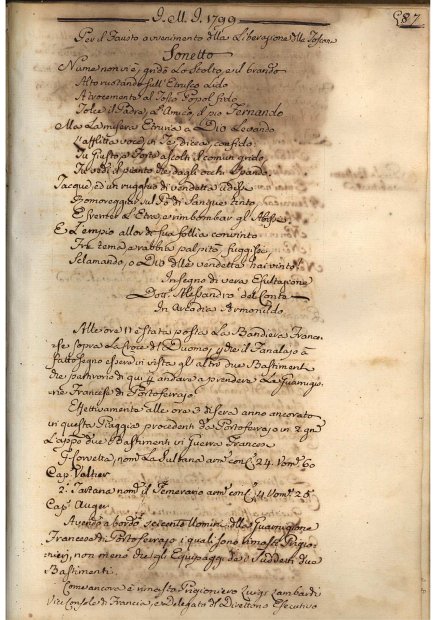 J. M. J. 1799
587
Per il Fausto avvenimento della Liberazione della Toscana
Sonetto
Nume non v'è, gridò Lo Stolto, e il brando
Alto ruotando sull'Etrusco Lido
Atrocemente al Tosco Popol fido
Tolse il Padre, l'Amico, il pio Fernando
Ma La misera Etruria a Dio Levando
L'afflitta voce, in Te, dicea, confido:
Tu Giusto, e Forte ascolti il comun grido,
Tu vedi il pianto che dagli occhi spando.
Tacque, ed un ruggito di vendetta udissi
Romoreggiar sul di Sangue tinto,
E l'Etra, e rimbombar gl'Abissi
E l'empio allor di sua follia convinto
Fra tema, e rabbia palpitò, fuggissi
Sclamando, o Dio delle vendette hai vinto
In segno di vera Esultazione
Dott. Alessandro del Conte
In Arcadia Armonildo
Alle ore 11 è stata posta La Bandiera France-
se sopra La Torre del Duomo, e di e il Fanalajo à
fatto segno essere in vista gl'altri due Bastimenti
che partirono di qui p. andare a prendere La Guarnigio-
ne Francese di Portoferrajo
Effettivamente alle ore 3 di sera anno ancorato
in questa Piaggia procedenti da Portoferrajo in 2 gni
L'appo due Bastimenti di Guerra Francesi
P. Corvetta, nom. La Sultana arm. con C. 24. Uom. 60
Cap. Valtier
2. Tartana nom. il Temerario arm. con C. 4. Uom. 25
Cap. Auger
Avendo a bordo seicento Uomini della Guarnigione
Francese di Portoferrajo i quali sono rimasti Prigio-
nieri, non meno che gli Equipaggi de' Suddetti due
Bastimenti.
Come ancora è rimasto Prigioniero Luigi Lombardi
Vice Console di Francia, e Delegato del Direttorio Esecutivo